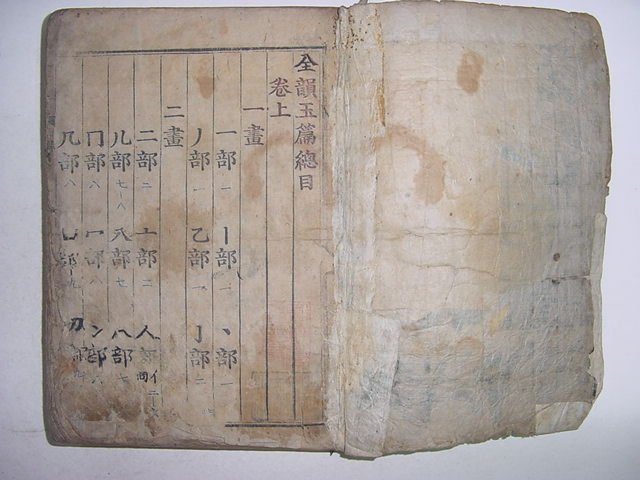 全韻玉篇總目
卷上
一畫
一部 一 丨部 一 丶部 一
丿部 一 乙部 一 亅部 二
二畫
二部 二 亠部 二 人部 亻同 二
儿部 七 入部 七 八部 七
冂部 八 冖部 八 冫部 八
几部 八 凵部 九 刀部